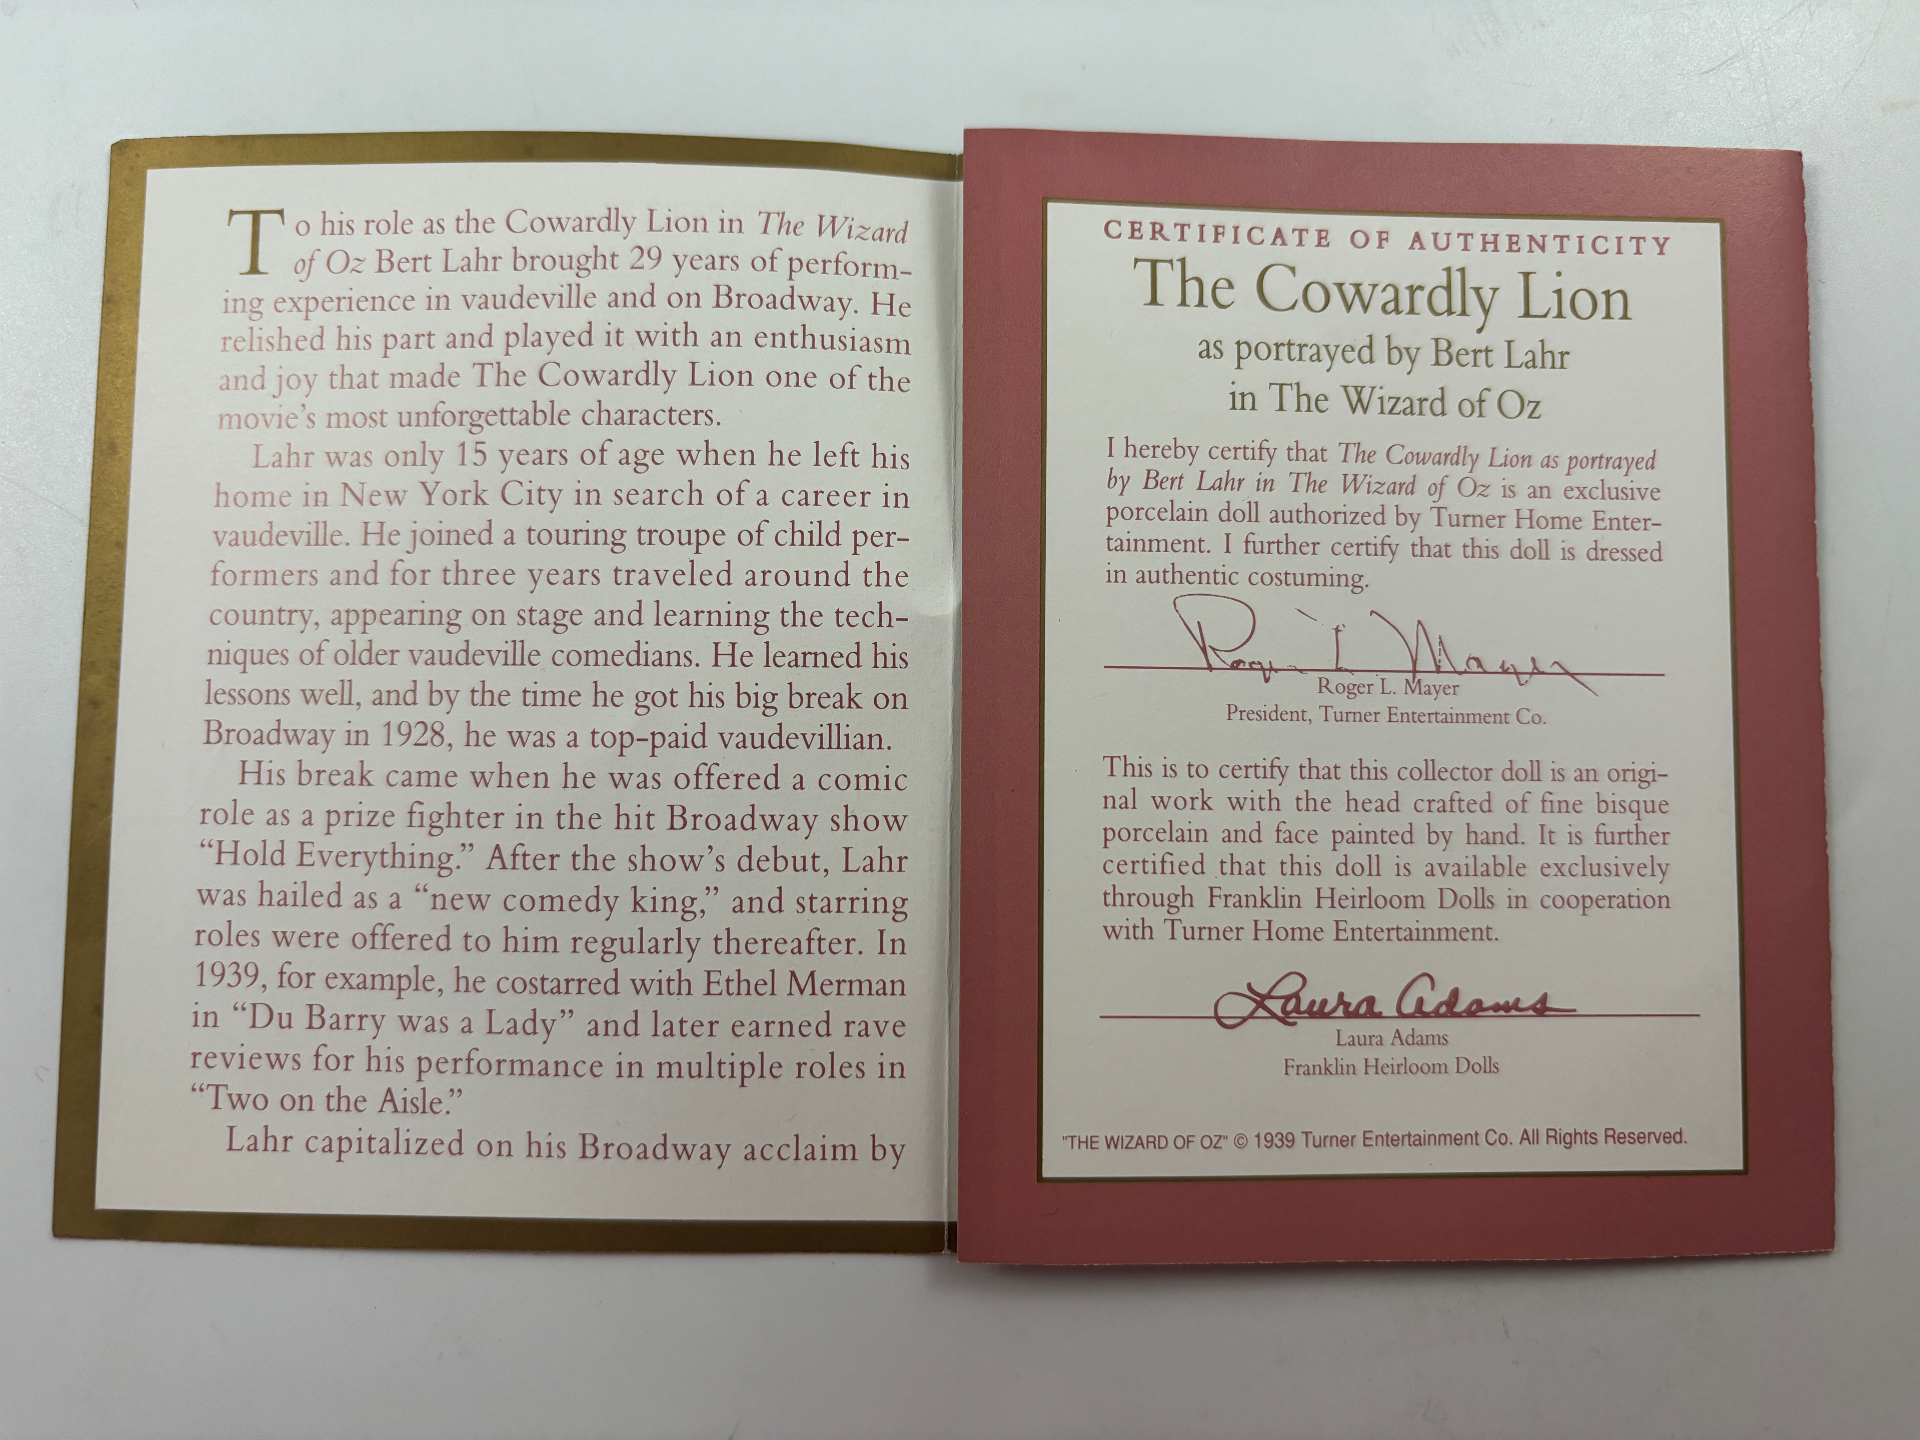 To his role as the Cowardly Lion in The Wizard
of Oz Bert Lahr brought 29 years of perform-
ing experience in vaudeville and on Broadway. He
relished his part and played it with an enthusiasm
and joy that made The Cowardly Lion one of the
movie's most unforgettable characters.
Lahr was only 15 years of age when he left his
home in New York City in search of a career in
vaudeville. He joined a touring troupe of child per-
formers and for three years traveled around the
country, appearing on stage and learning the tech-
niques of older vaudeville comedians. He learned his
lessons well, and by the time he got his big break on
Broadway in 1928, he was a top-paid vaudevillian.
His break came when he was offered a comic
role as a prize fighter in the hit Broadway show
“Hold Everything.” After the show's debut, Lahr
was hailed as a “new comedy king,” and starring
roles were offered to him regularly thereafter. In
1939, for example, he costarred with Ethel Merman
in “Du Barry was a Lady” and later earned rave
reviews for his performance in multiple roles in
“Two on the Aisle.”
Lahr capitalized on his Broadway acclaim by
CERTIFICATE OF AUTHENTICITY
The Cowardly Lion
as portrayed by Bert Lahr
in The Wizard of Oz
I hereby certify that The Cowardly Lion as portrayed
by Bert Lahr in The Wizard of Oz is an exclusive
porcelain doll authorized by Turner Home Enter-
tainment. I further certify that this doll is dressed
in authentic costuming.
Roger L. Mayer
Roger L. Mayer
President, Turner Entertainment Co.
This is to certify that this collector doll is an origi-
nal work with the head crafted of fine bisque
porcelain and face painted by hand. It is further
certified that this doll is available exclusively
through Franklin Heirloom Dolls in cooperation
with Turner Home Entertainment.
Laura Adams
Laura Adams
Franklin Heirloom Dolls
"THE WIZARD OF OZ" © 1939 Turner Entertainment Co. All Rights Reserved.